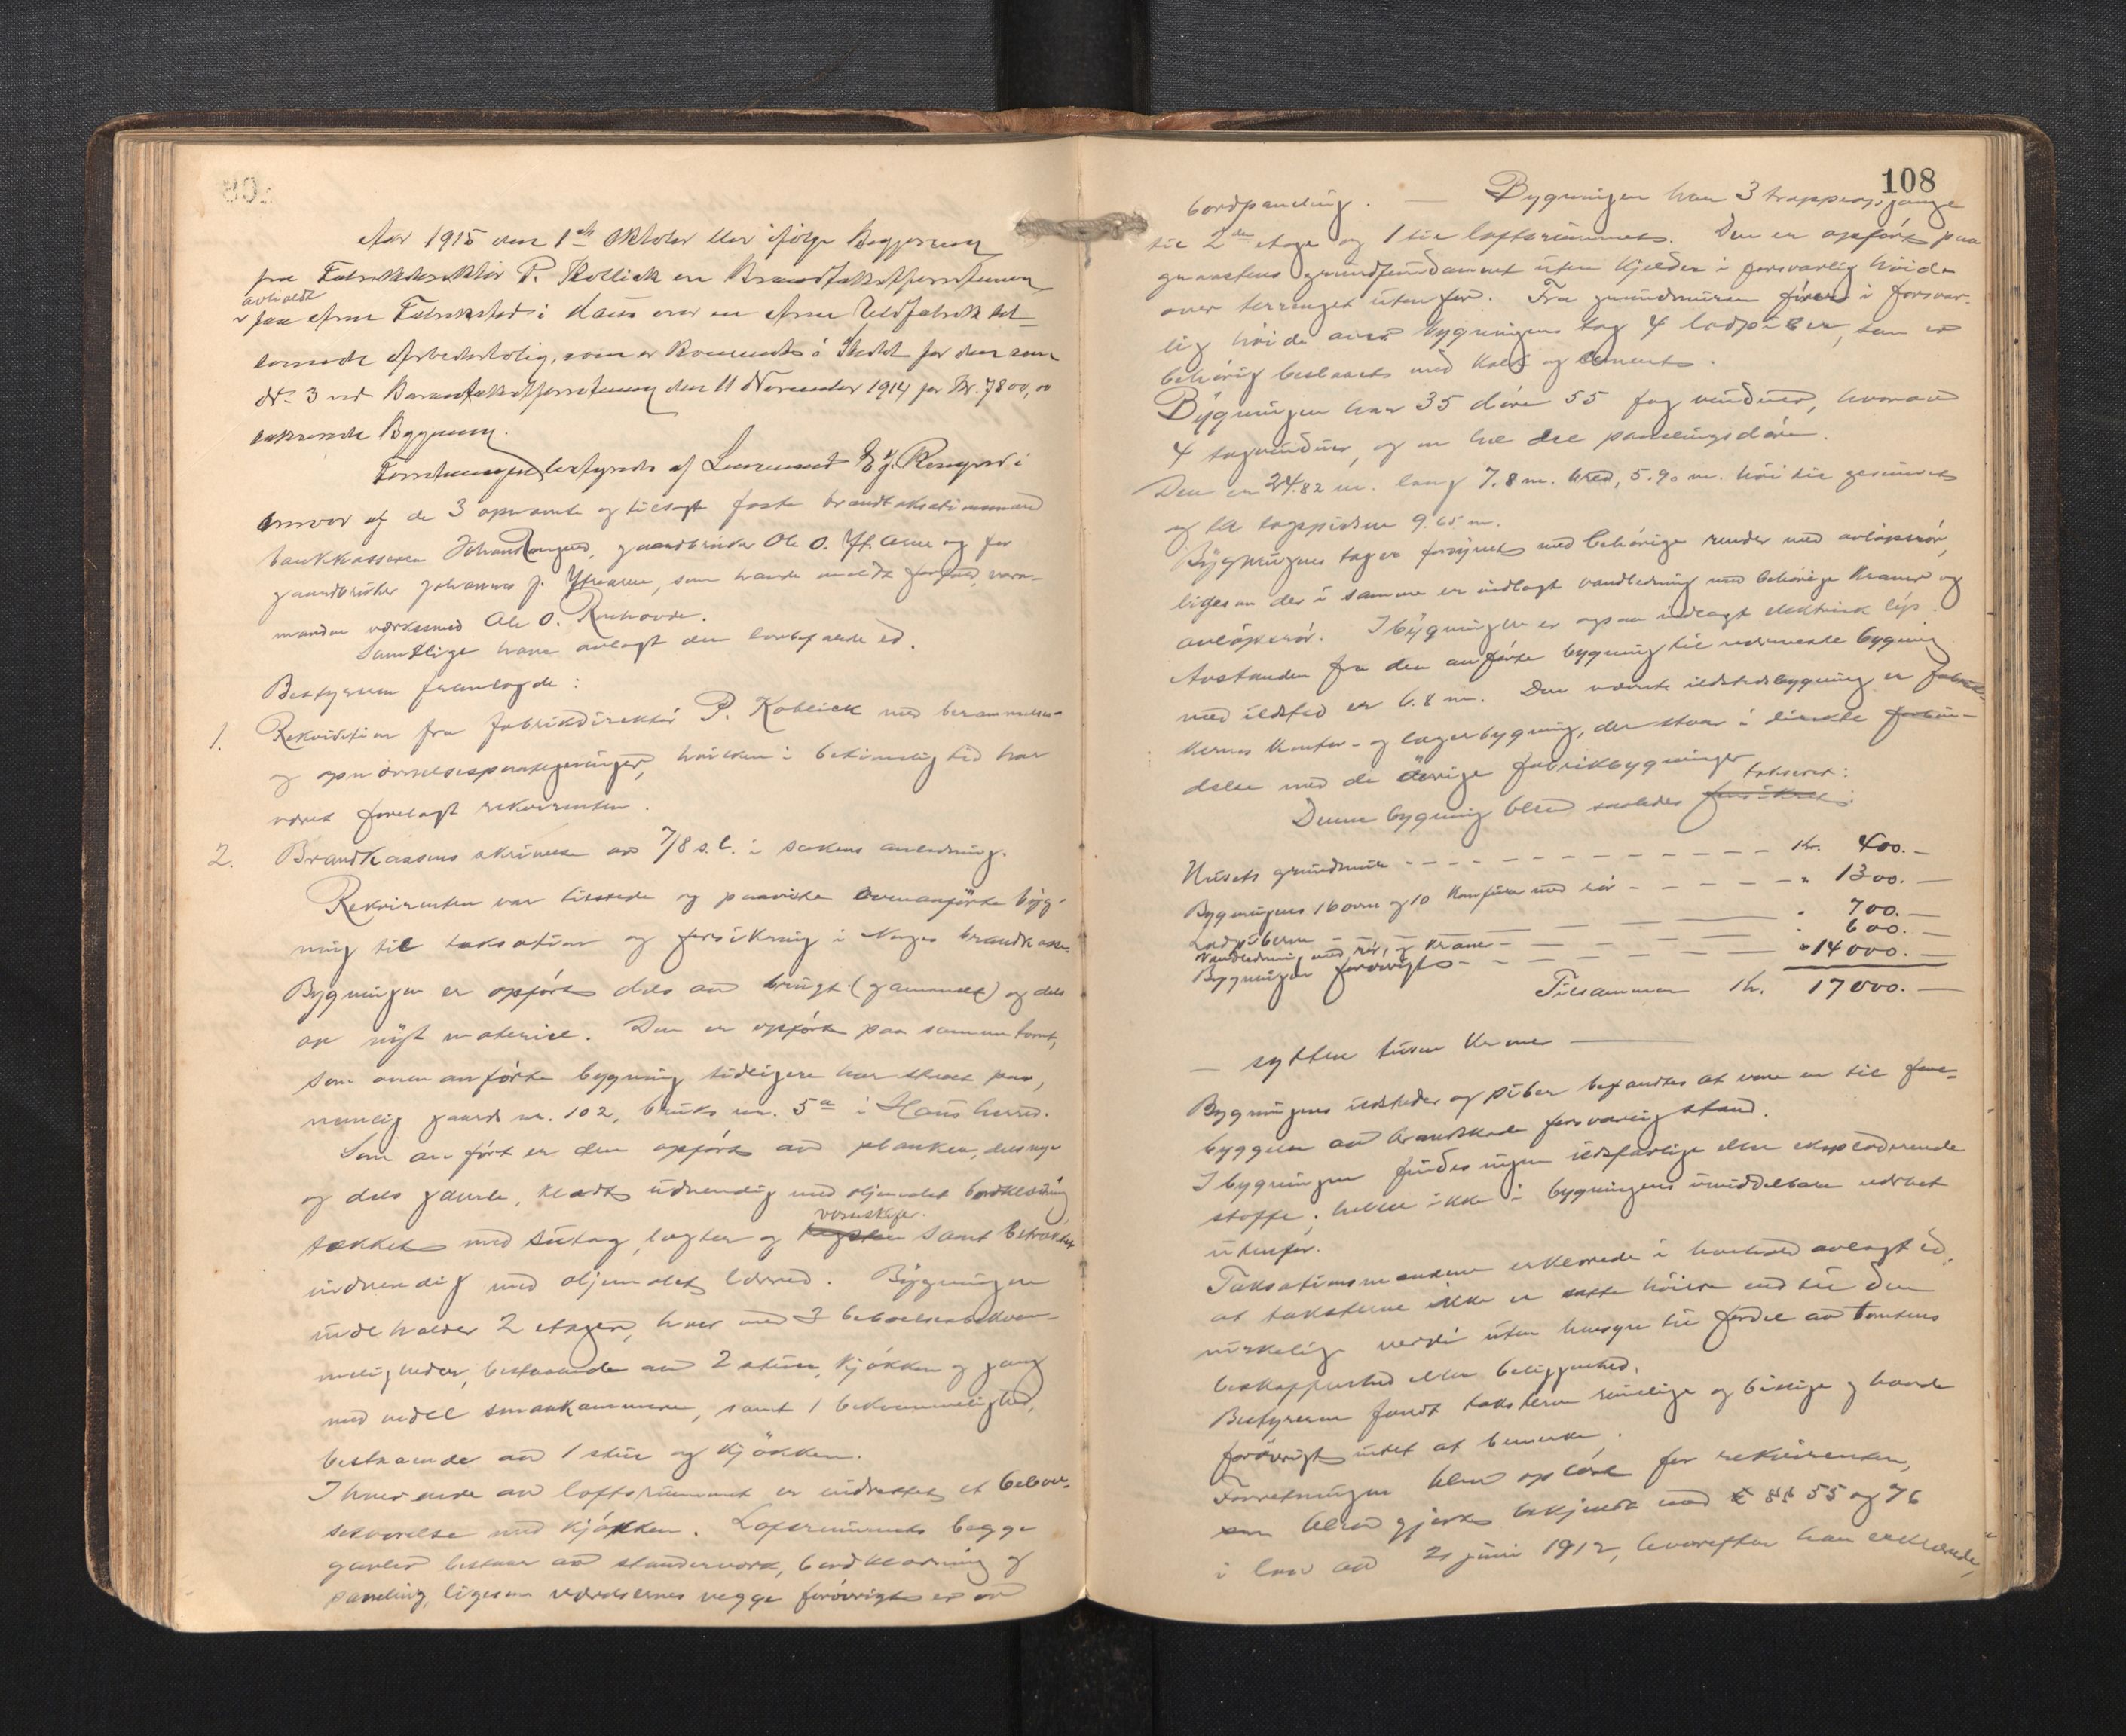 Aar 1915 den 1ste Oktober blev ifølge Begjæring
fra Fabrikdirektør P. Kollick en Brandtakstforretning
avholdt
paa Arne Fabriksted i Haus over en Arne Uldfabrik til-
hørende Arbeiderbolig, som er kommet i Stedet for den som
No 3 ved Brandtakstforretning den 11 November 1914 for Kr. 7800,00
takserede Bygning.
Forretningen bestyredes af Lensmand
ansvar af de 3 opnævnte og tilsagte faste brandtaksationsmænd
bankkasserer Johan Ramgrad, gaardbruker Ole O. Yt. Arne og for
gaardbruker Johannes J. Ytrearne, som havde meldt forfald, vara-
manden værksmed Ole O. Romhovde.
Samtlige have avlagt den lovbefalede ed.
Bestyreren fremlagde:
1. Rekvisition fra fabrikdirektør P. Kollick med berammelses-
og opnævnelsespaategninger, hvilken i betimelig tid har
været forelagt rekvirenten.
2. Brandkassens skrivelse av 7/8 s.l. i sakens anledning.
Rekvirenten var tilstede og paaviste ovenanførte byg-
ning til taksation og forsikring i Norges brandkasse.
Bygningen er opført dels av brugt (gammelt) og dels
av nyt materiel. Den er opført paa samme tomt,
som ovenanførte bygning tidligere har staaet paa,
nemlig gaards nr. 102, bruks nr. 5a i Haus herred.
Som anført er den opført av planker, dels nye
og dels gamle, klædt udvendig med oljemalet bordklædning
vorneskifer.
tækket med sutag, lægter og tagsten samt betrukket
indvendig med oljemalet lærred. Bygningen
indeholder 2 etager, hver med 3 beboelsesbekvem-
meligheder, bestaaende av 2 stuer, kjøkken og gang
med nedel smaakammere, samt 1 bekvemmelighed,
bestaaende av 1 stue og kjøkken.
I hver ende av loftsrummet er indrettet et beboel-
sesværelse med kjøkken. Loftsrummets begge
gavler bestaar av standerverk, bordklædning og
paneling, ligesom værelsernes vegge forøvrigt er av
108
bordpaneling. — Bygningen har 3 trappeopgange
til 2den etage og 1 til loftsrummet. Den er opført paa
graastens grundfundament uten kjelder i forsvarlig høide
over terrenget utenfor. Fra grundmuren fører i forsvar-
lig høide over bygningens tag 4 ladpiber, som er
behørig beslaaet med kalk og cement.
Bygningen har 35 døre 55 fag vinduer, hvorav
4 tagvinduer, og en hel del panelingsdøre.
Den er 24.82 m. lang 7.8 m. bred, 5.90 m. høi til gesimset
og til tagspidsen 9.65 m.
Bygningens tag er forsynet med behørige render med avløpsrør,
ligesom der i samme er indlagt vandledning med behørige kraner og
avløpsrør. I bygningen er ogsaa indlagt elektrisk lys.
Avstanden fra den anførte bygning til nærmeste bygning
med ildsted er 6.8 m. Den nærmeste ildstedsbygning er fabrik-
kernes kontor- og lagerbygning, der staar i direkte forbin-
delse med de øvrige fabrikbygninger
takseret:
Denne bygning blev saaledes forsikret:
Husets grundmur - - - - - - - Kr. 400.—
Bygningens 16 ovne og 10 komfurer med rør - - - - " 1300.—
Ladpiberne — — — " 700.—
Vandledning med rør, og kraner - — — — " 600.—
Bygningen forøvrigt - - — — — " 14000.—
Tilsammen Kr. 17000.—
— sytten tusen kroner —
Bygningens ildsteder og piber befandtes at være en til fore-
byggelse av brandskade forsvarlig stand.
I bygningen findes ingen ildsfarlige eller eksploderende
stoffe; heller ikke i bygningens umiddelbare nærhet
utenfor.
Taksationsmændene erklærede i henhold avlagt ed,
at taksterne ikke er satte høiere end til den
virkelige værdi uten hensyn til fordel av tomtens
beskaffenhed eller beliggenhed.
Bestyreren fandt taksterne rimelige og billige og havde
forøvrigt intet at bemerke.
Forretningen blev oplæst for rekvirenten,
som blev gjort bekjendt med §§ 55 og 76
i lov av 21 juni 1912, hvorefter han erklærede,